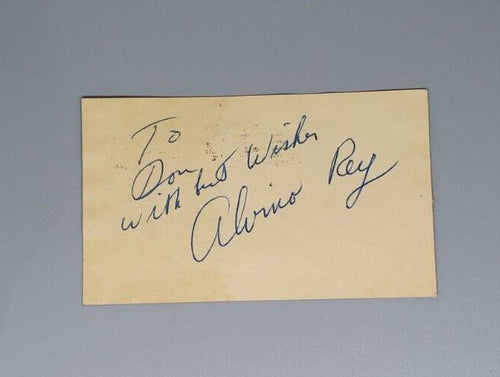 To
Don
With best Wishes
Alvino Rey